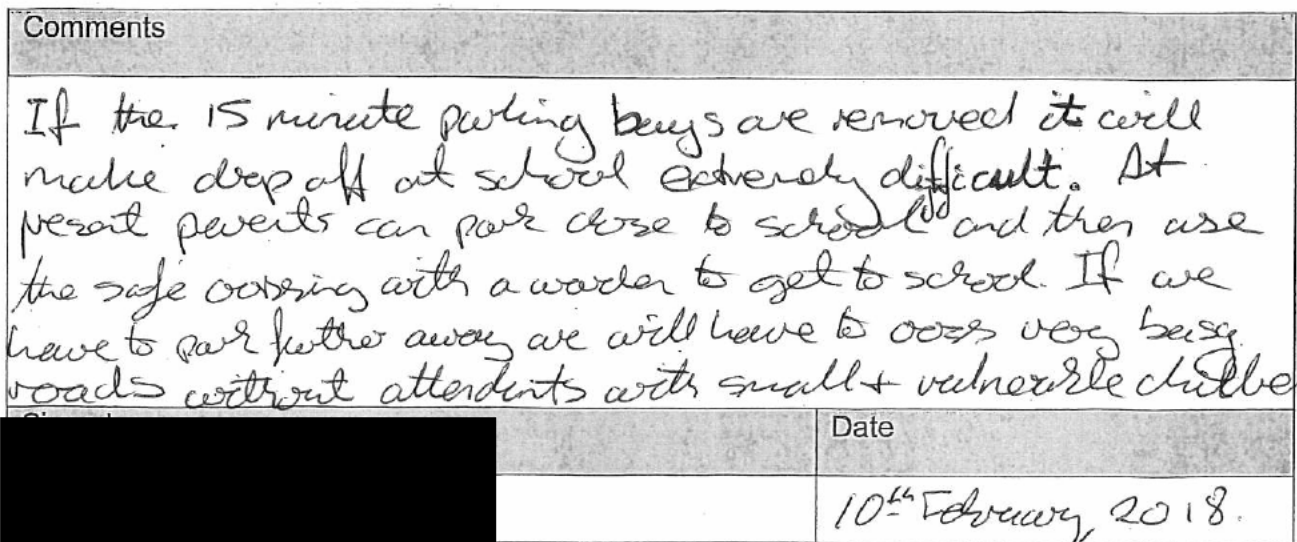 Comments
If the 15 minute parking bays are removed it will
make drop off at school extremely difficult. At
present parents can park close to school and then use
the safe crossing with a warden to get to school. If we
have to park further away we will have to cross very busy
roads without attendants with small + vulnerable
Date
10th February, 2018.